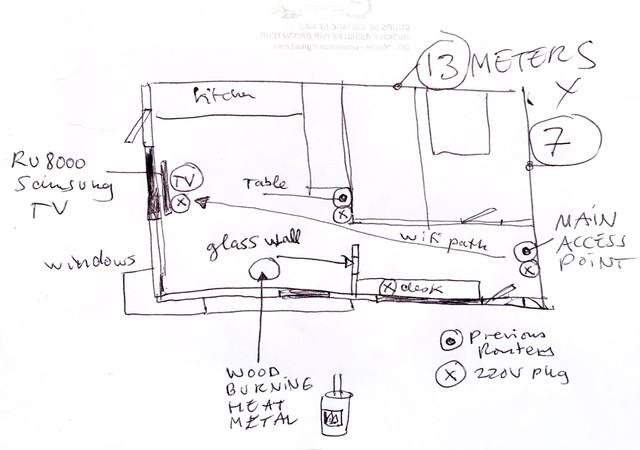 13 METERS
X
7
kitchen
RU8000
Samsung
TV
TV
X
Table
X
wifi path
MAIN
ACCESS
POINT
X
glass wall
windows
X desk
Previous
Routers
X 220V plug
WOOD
BURNING
HEAT
METAL